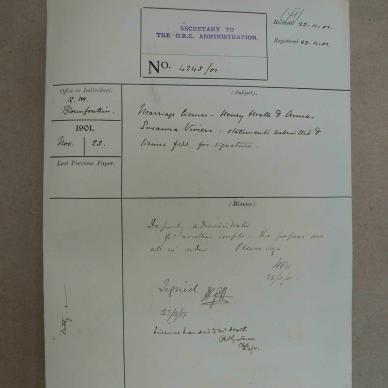 (A)
SECRETARY TO
THE O.R.C. ADMINISTRATION.
Received 23.11.01.
Registered 23.11.01.
No. 4245/01
Office or Individual.
R.M.
Bloemfontein.
1901.
Nov. 23.
Last Previous Paper.
(Subject).
Marriage Licence - Henry Heath & Anna
Susanna Viviers: statements submitted &
licence fwd. for signature.
(Minutes).
Deputy Administrator
for another couple. The papers are
all in order. Please sign
Signed
Licence handed to Mr Heath